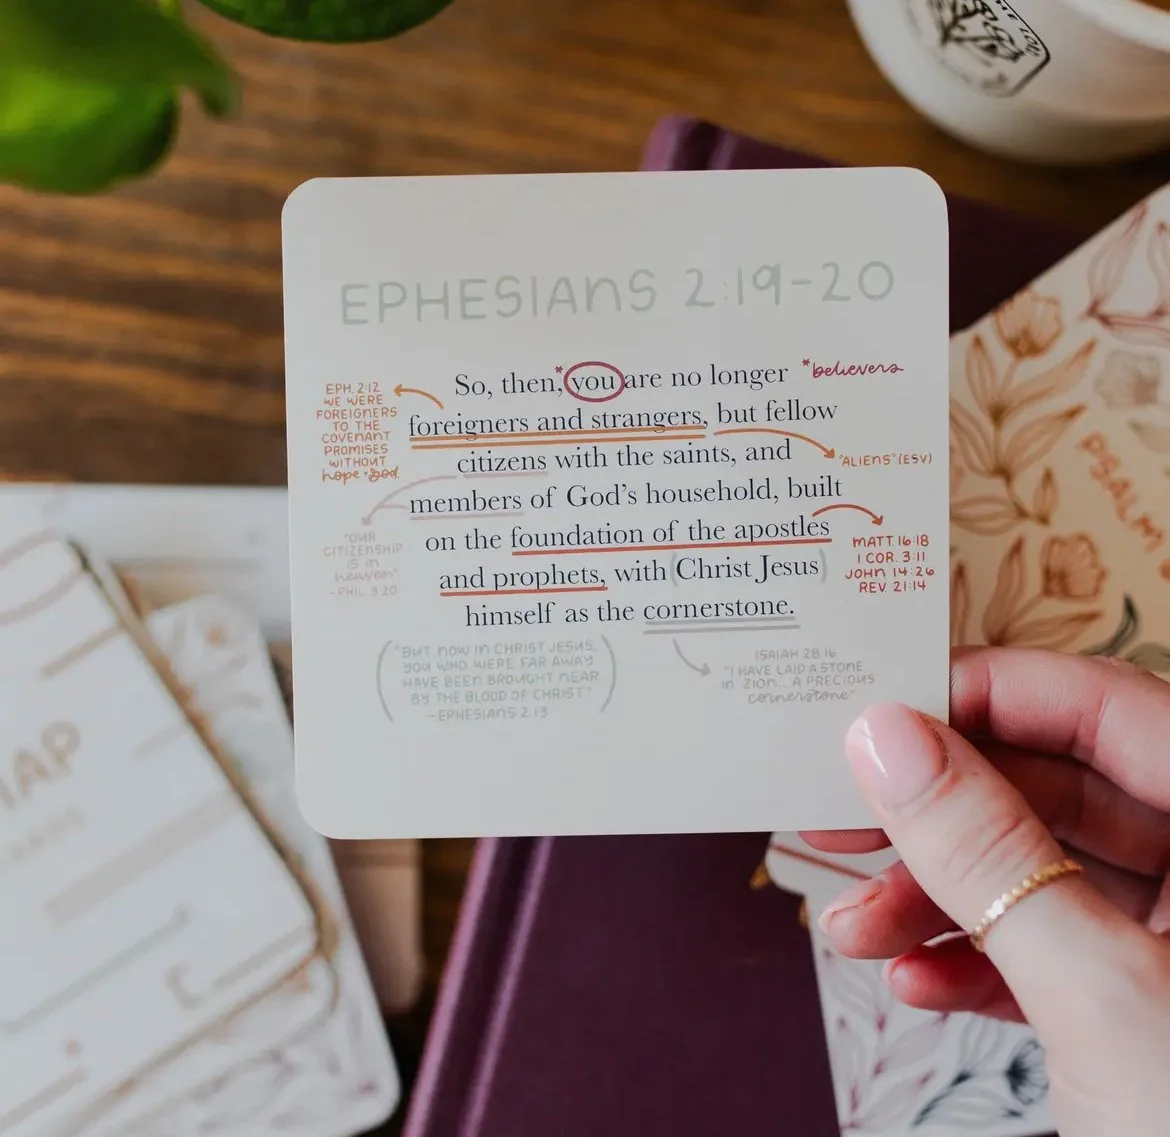 EPHESIANS 2:19-20
So, then,* you are no longer *believers
foreigners and strangers, but fellow
citizens with the saints, and
members of God's household, built
on the foundation of the apostles
and prophets, with (Christ Jesus)
himself as the cornerstone.
EPH. 2:12
WE WERE
FOREIGNERS
TO THE
COVENANT
PROMISES
WITHOUT
hope + God
"ALIENS" (ESV)
"OUR
CITIZENSHIP
IS IN
heaven"
- PHIL. 3:20
MATT. 16:18
1 COR. 3:11
JOHN 14:26
REV. 21:14
("BUT NOW IN CHRIST JESUS,
YOU WHO WERE FAR AWAY
HAVE BEEN BROUGHT NEAR
BY THE BLOOD OF CHRIST"
-EPHESIANS 2:13)
ISAIAH 28:16
"I HAVE LAID A STONE
IN ZION... A PRECIOUS
cornerstone"
PSALM